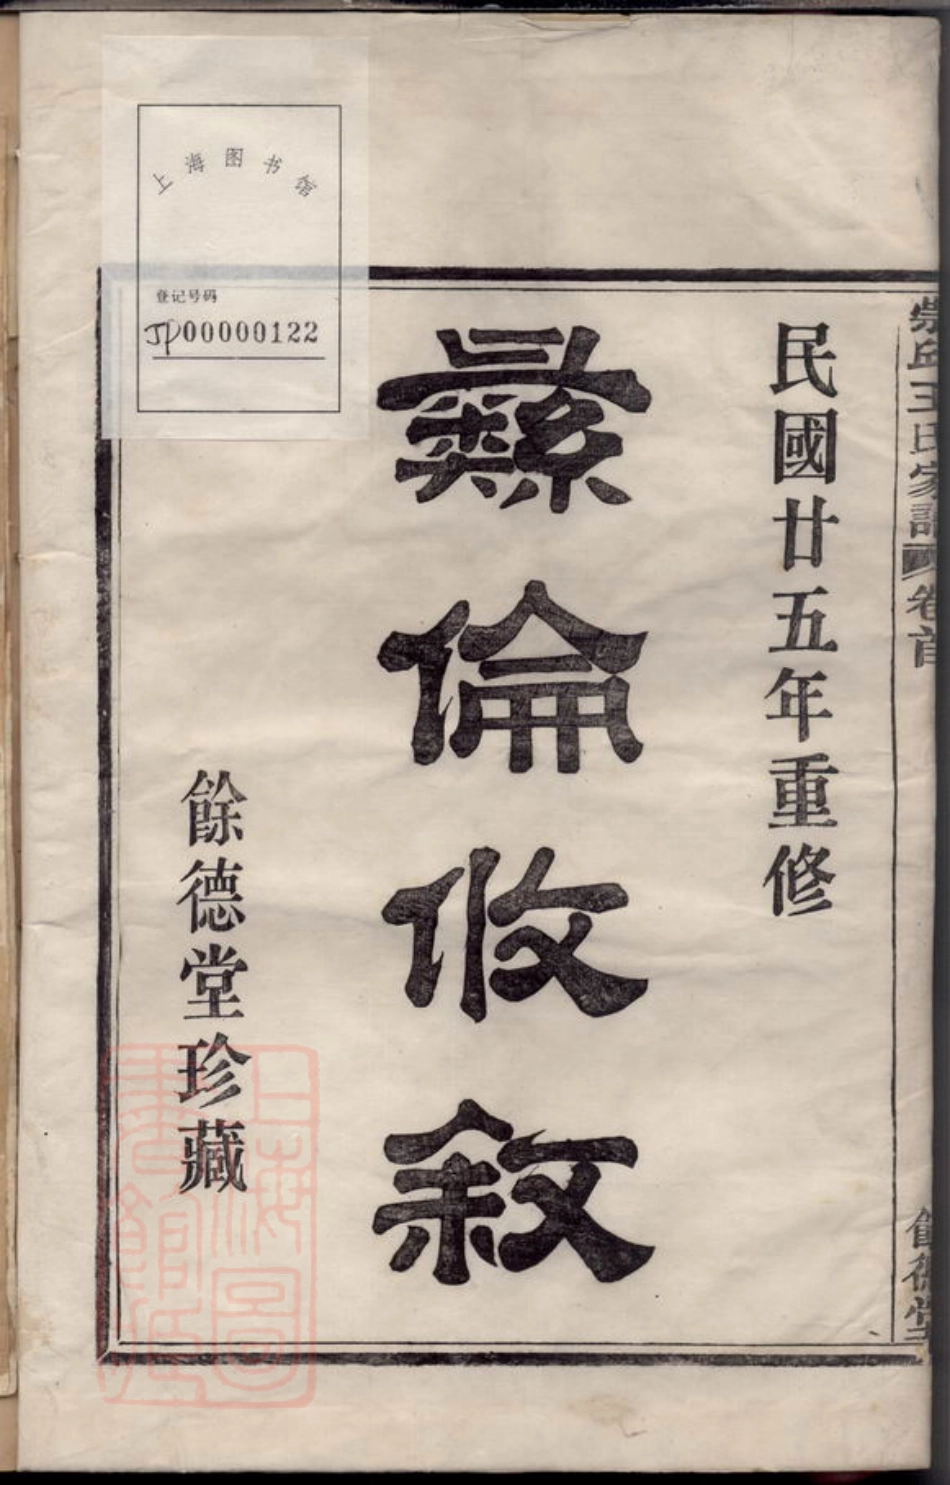 崇邱王氏家譜 卷首
餘德堂
民國廿五年重修
彝倫攸敘
餘德堂珍藏
上海图书馆
登记号码
JP00000122
上海圖
書館藏